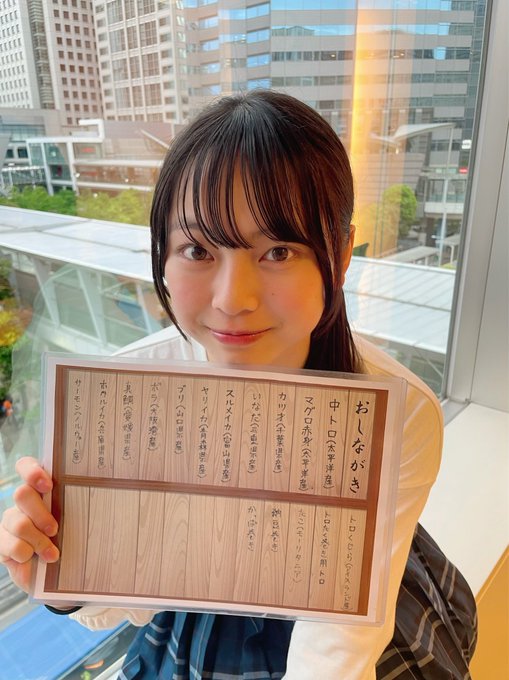 おしながき
中トロ(太平洋産)
マグロ赤身(太平洋産)
カツオ(千葉県産)
いなだ(三重県産)
スルメイカ(富山県産)
ヤリイカ(青森県産)
ブリ(山口県産)
ボラ(大阪湾産)
真鯛(愛媛県産)
ホタルイカ(兵庫県産)
サーモン(ノルウェー産)
トロくじら(アイスランド産)
トロたく巻き用トロ
たこ(モーリタニア)
納豆巻き
かっぱ巻き